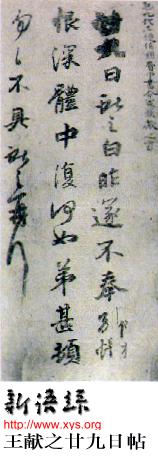 廿九日獻之白昨遂不奉別悵
恨深體中復何如弟甚頓
匆匆不具獻之再拜
新語絲
http://www.xys.org
王献之廿九日帖